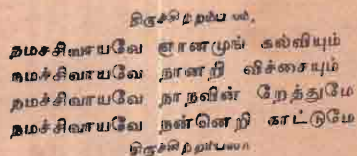 திருச்சிற்றம்பலம்.
நமச்சிவாயவே ஞானமுங் கல்வியும்
நமச்சிவாயவே நானறி விச்சையும்
நமச்சிவாயவே நாநவின் றேத்துமே
நமச்சிவாயவே நன்னெறி காட்டுமே
திருச்சிற்றம்பலம்